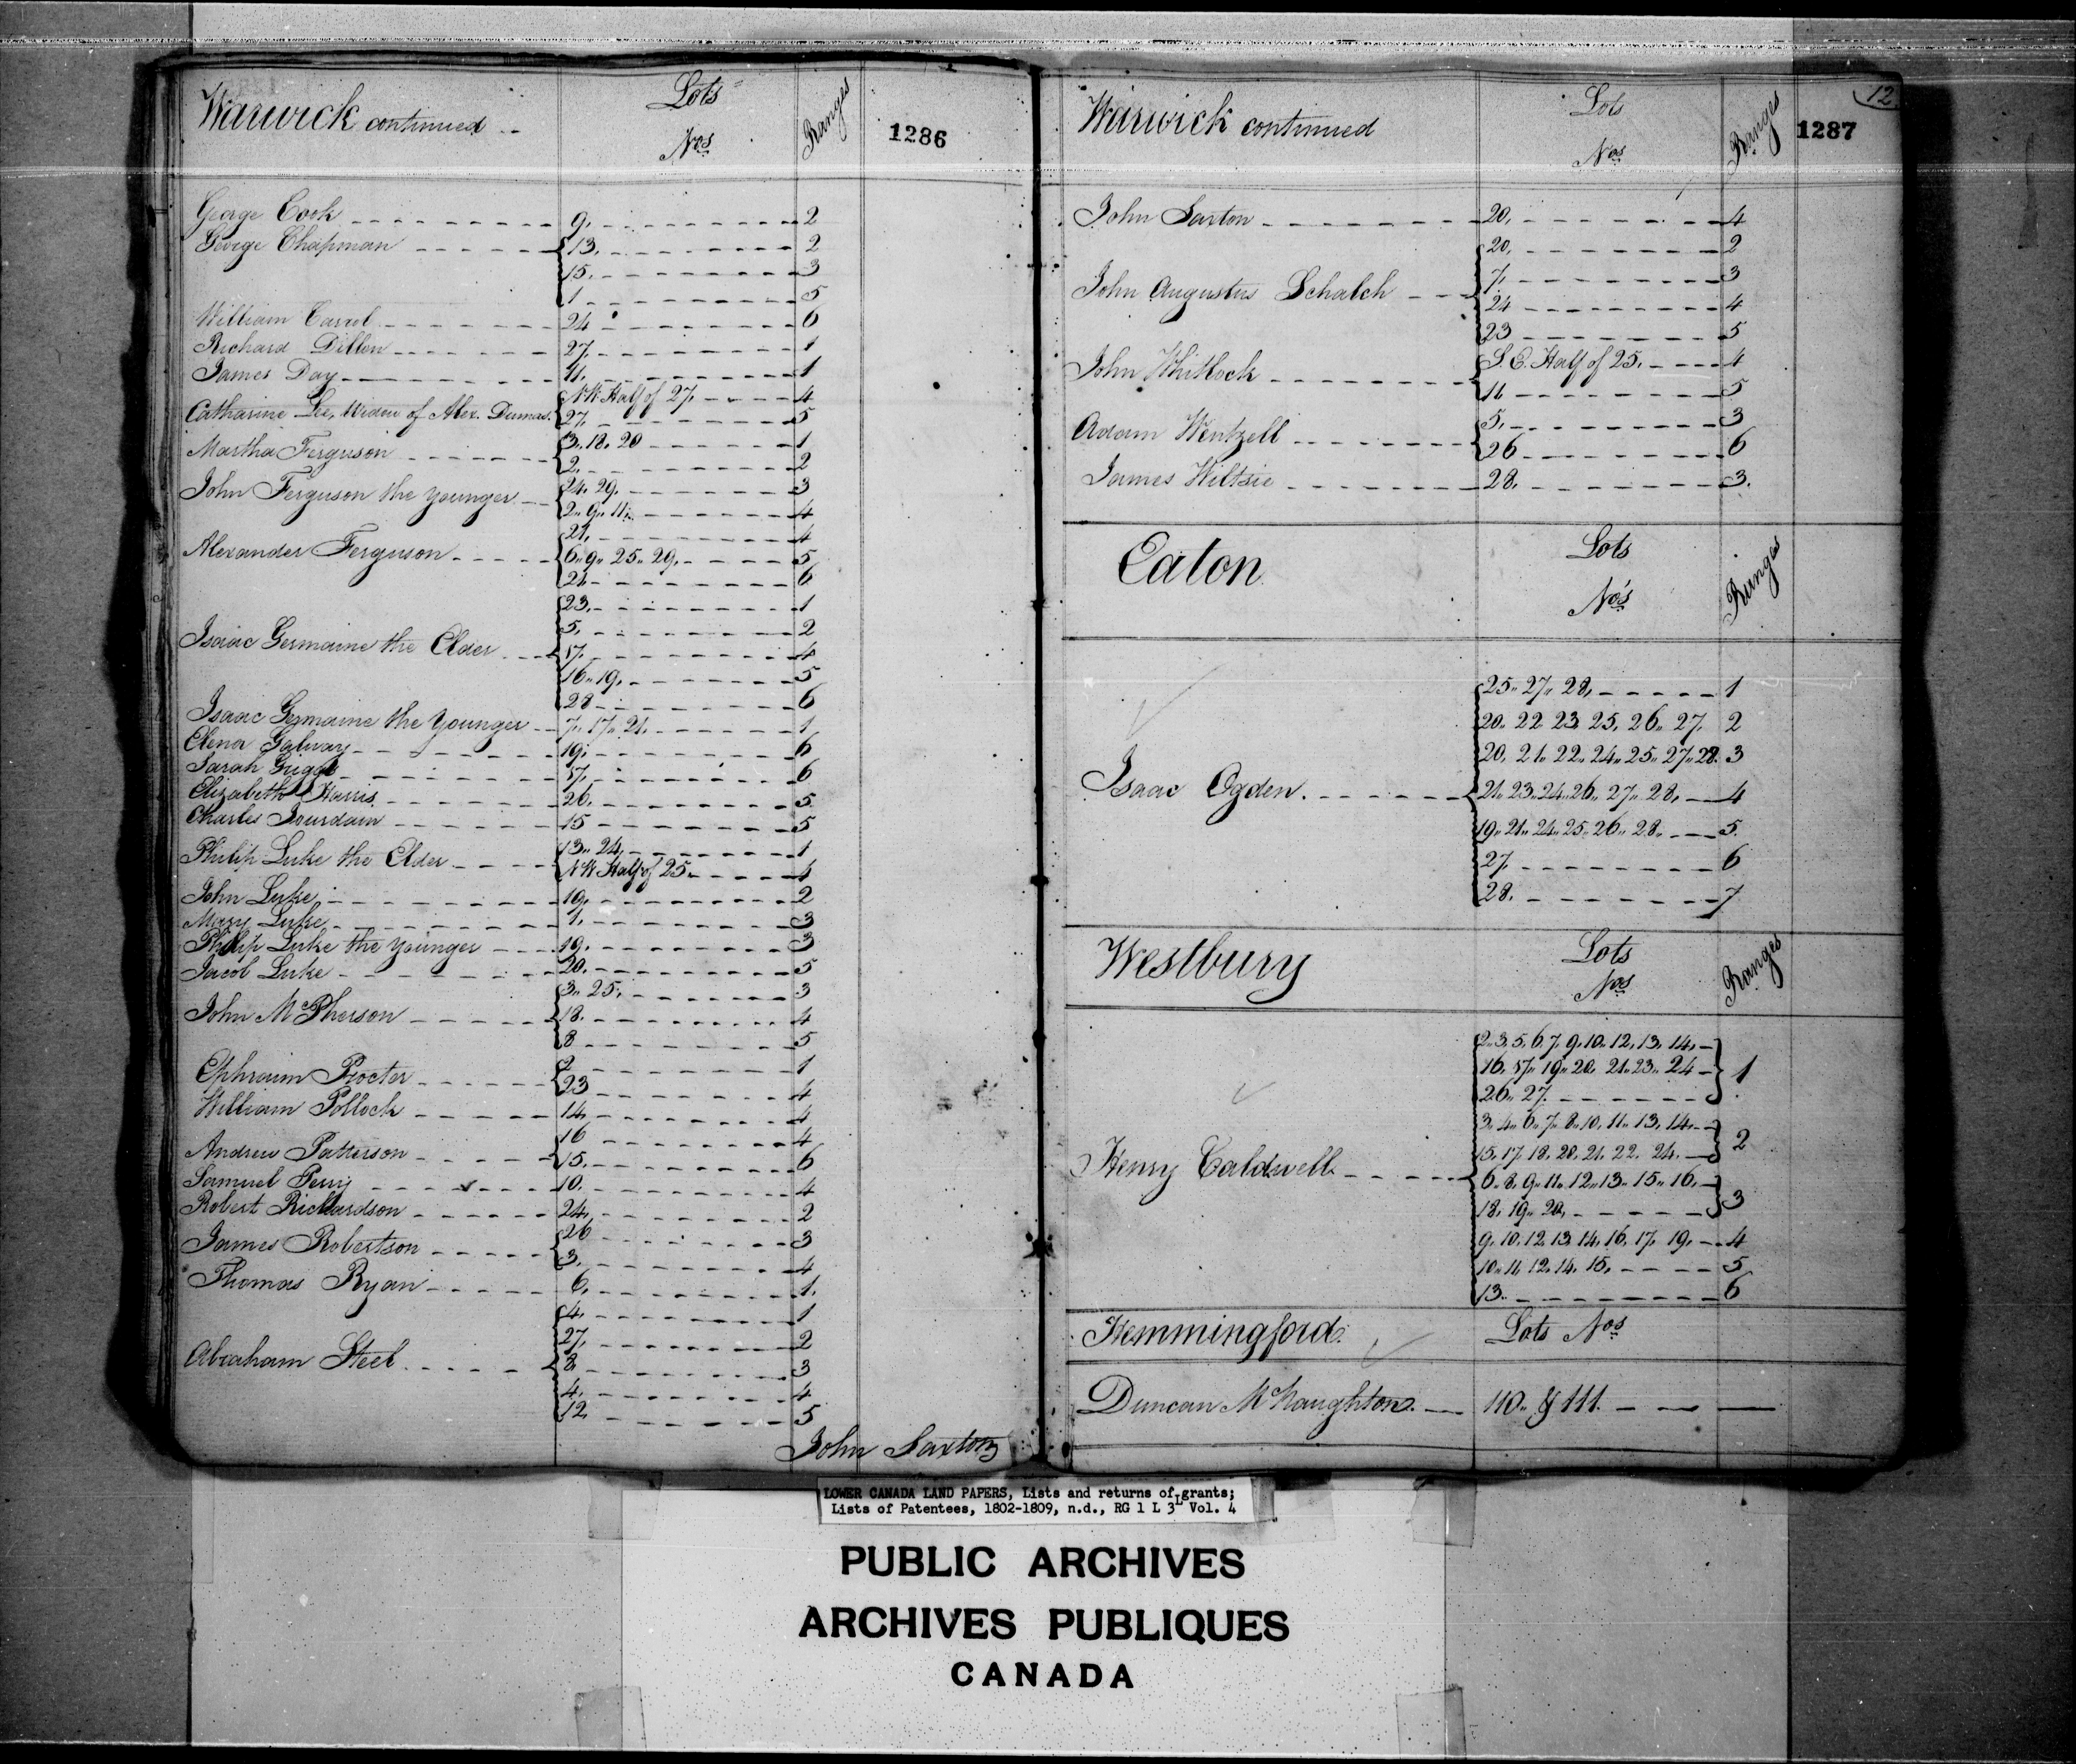 Warwick continued
Lots Nos
Ranges
1286
George Cook 9. 2
George Chapman 13. 2
15. 3
1 5
William Carrol 24 6
Richard Dillen 27. 1
James Day 11. 1
NW Half of 27. 4
Catharine Lee, Widow of Alex. Dumas. 27. 5
Martha Ferguson 3. 18. 20 1
2. 2
John Ferguson the younger 24. 29. 3
2. 9. 11. 4
21. 4
Alexander Ferguson 6. 9. 25. 29. 5
21. 6
23. 1
5. 2
Isaac Germaine the Elder 17. 4
16. 19. 5
28 6
Isaac Germaine the Younger 7. 17. 21. 1
Elenor Galway 19. 6
Sarah Griggs 17. 6
Elizabeth Harris 26. 5
Charles Jourdain 15 5
Philip Luke the Elder 13. 24. 1
NW Half of 25. 4
John Luke 19. 2
Mary Luke 1. 3
Philip Luke the Younger 19. 3
Jacob Luke 20. 5
3. 25. 3
John McPherson 18. 4
8 5
Ephraim Procter 2 1
23 4
William Pollock 14. 4
16 4
Andrew Patterson 15. 6
Samuel Perry 10. 4
Robert Richardson 24. 2
James Robertson 26 3
3. 4
Thomas Ryan 6. 1.
4. 1
27. 2
Abraham Steel 8 3
4. 4
12 5
John Saxton
Warwick continued
Lots Nos
Ranges
1287
12
John Saxton 20. 4
20. 2
John Augustus Schalch 7. 3
24 4
23 5
John Whitlock S.E. Half of 25. 4
11 5
Adam Wentzell 5. 3
26 6
James Wiltsie 28. 3.
Eaton
Lots
Nos
Ranges
25. 27. 28. 1
20. 22. 23. 25. 26. 27. 2
20. 21. 22. 24. 25. 27. 28. 3
Isaac Ogden. 21. 23. 24. 26. 27. 28. 4
19. 21. 24. 25. 26. 28. 5.
27. 6
28. 7
Westbury
Lots
Nos
Ranges
2. 3. 5. 6. 7. 9. 10. 12. 13. 14.
16. 17. 19. 20. 21. 23. 24 1
26. 27.
3. 4. 6. 7. 8. 10. 11. 13. 14.
15. 17. 18. 20. 21. 22. 24. 2
Henry Caldwell 6. 8. 9. 11. 12. 13. 15. 16.
18. 19. 20. 3
9. 10. 12. 13. 14. 16. 17. 19. 4
10. 11. 12. 14. 15. 5
13. 6
Hemmingford. Lots Nos
Duncan McNaughton. 110. & 111.
LOWER CANADA LAND PAPERS, Lists and returns of grants;
Lists of Patentees, 1802-1809, n.d., RG 1 L 3L Vol. 4
PUBLIC ARCHIVES
ARCHIVES PUBLIQUES
CANADA